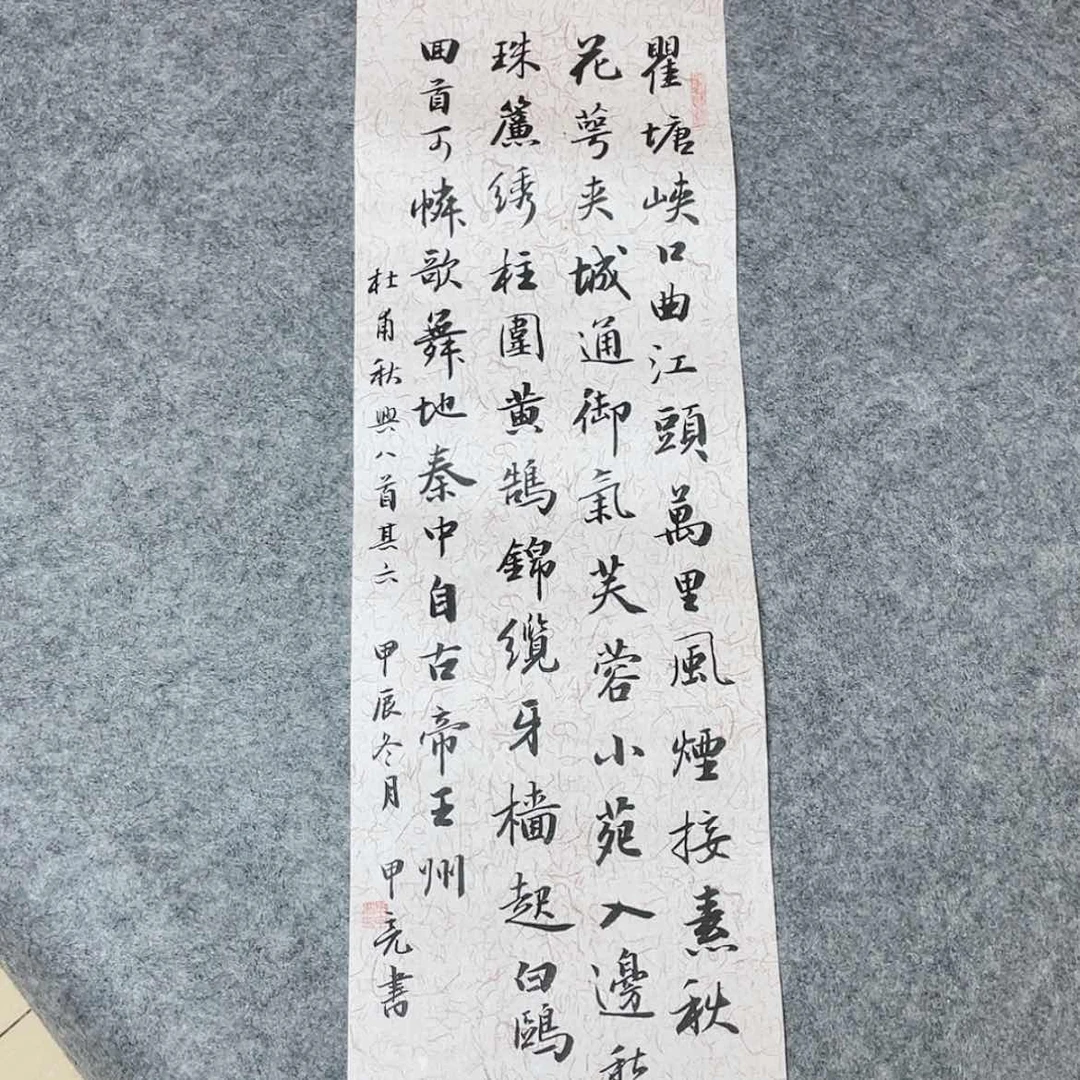 瞿塘峽口曲江頭萬里風煙接素秋
花萼夾城通御氣芙蓉小苑入邊
珠簾绣柱圍黄鵠錦纜牙檣起白鷗
回首可憐歌舞地秦中自古帝王州
杜甫秋興八首其六 甲辰冬月 甲亮書